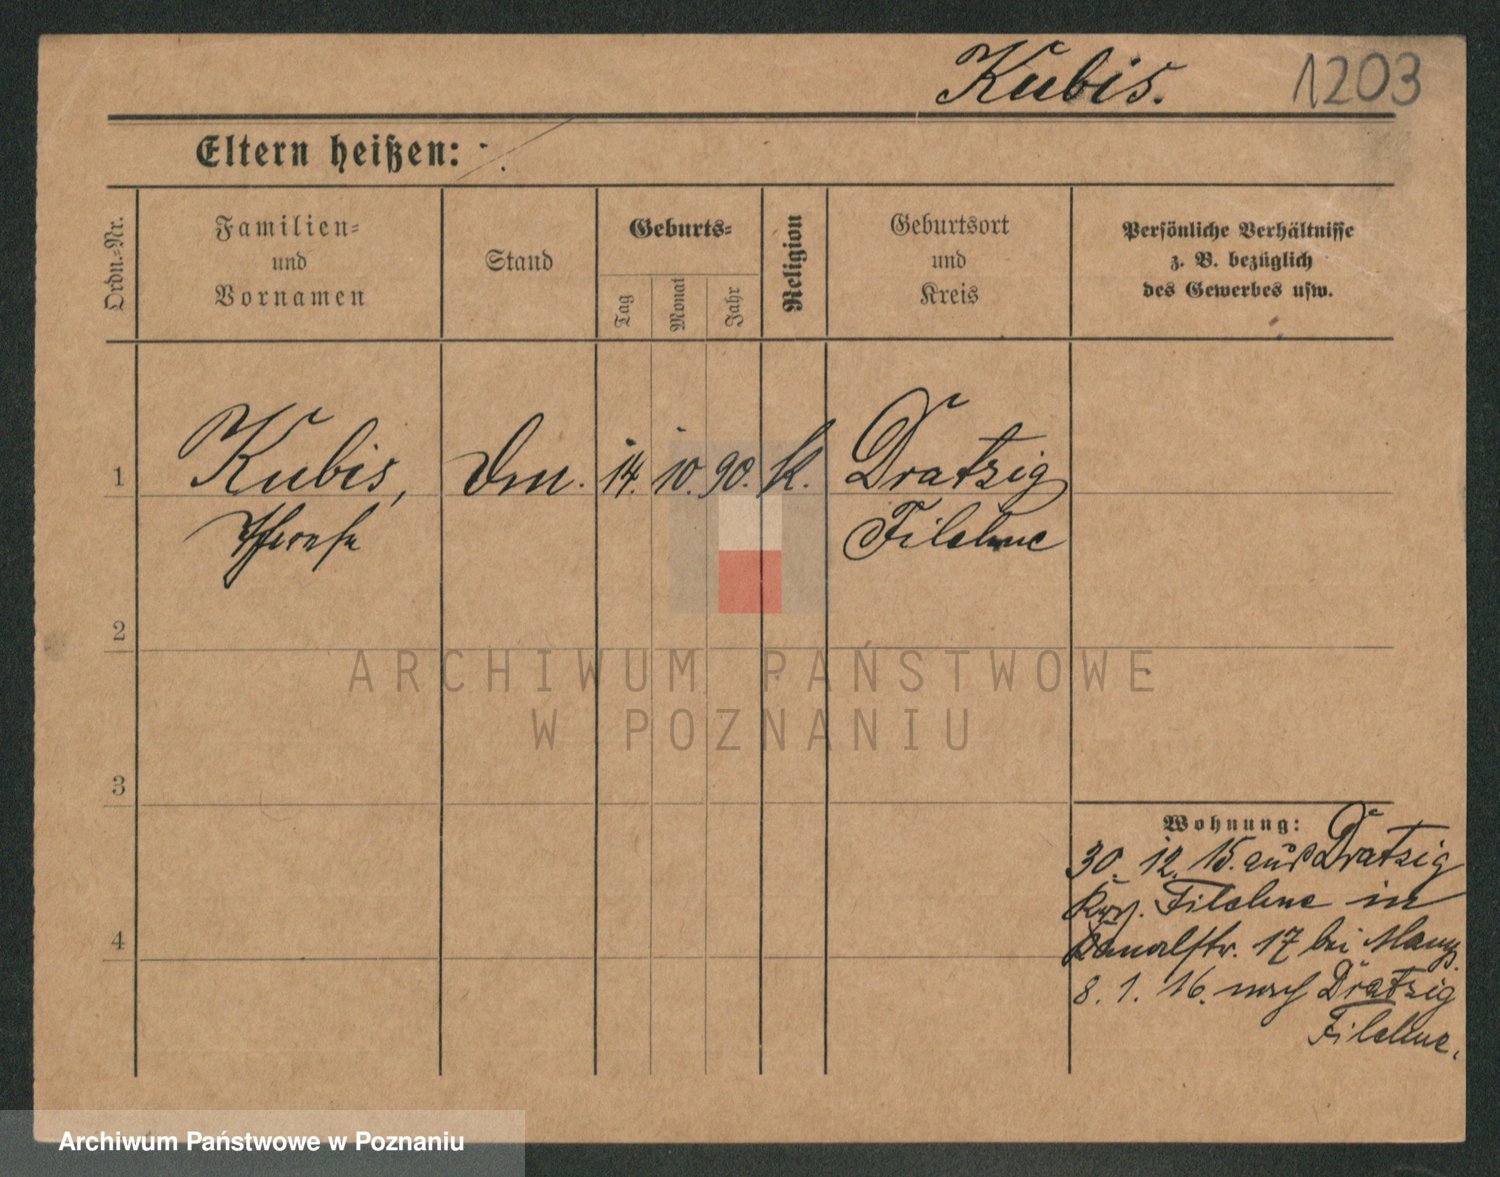 Kubis. 1203
Eltern heißen:
Ordn.=Nr.
Familien=
und
Vornamen
Stand
Geburts=
Tag
Monat
Jahr
Religion
Geburtsort
und
Kreis
Persönliche Verhältnisse
z. B. bezüglich
des Gewerbes usw.
1 Kubis, 14. 10. 90. K. Dratzig
Therese Filehne
2
3
4
Wohnung:
30. 12. 15. aus Dratzig
Filehne in
Kanalstr. 17 bei
8. 1. 16. nach Dratzig
Filehne.
ARCHIWUM PAŃSTWOWE
W POZNANIU
Archiwum Państwowe w Poznaniu